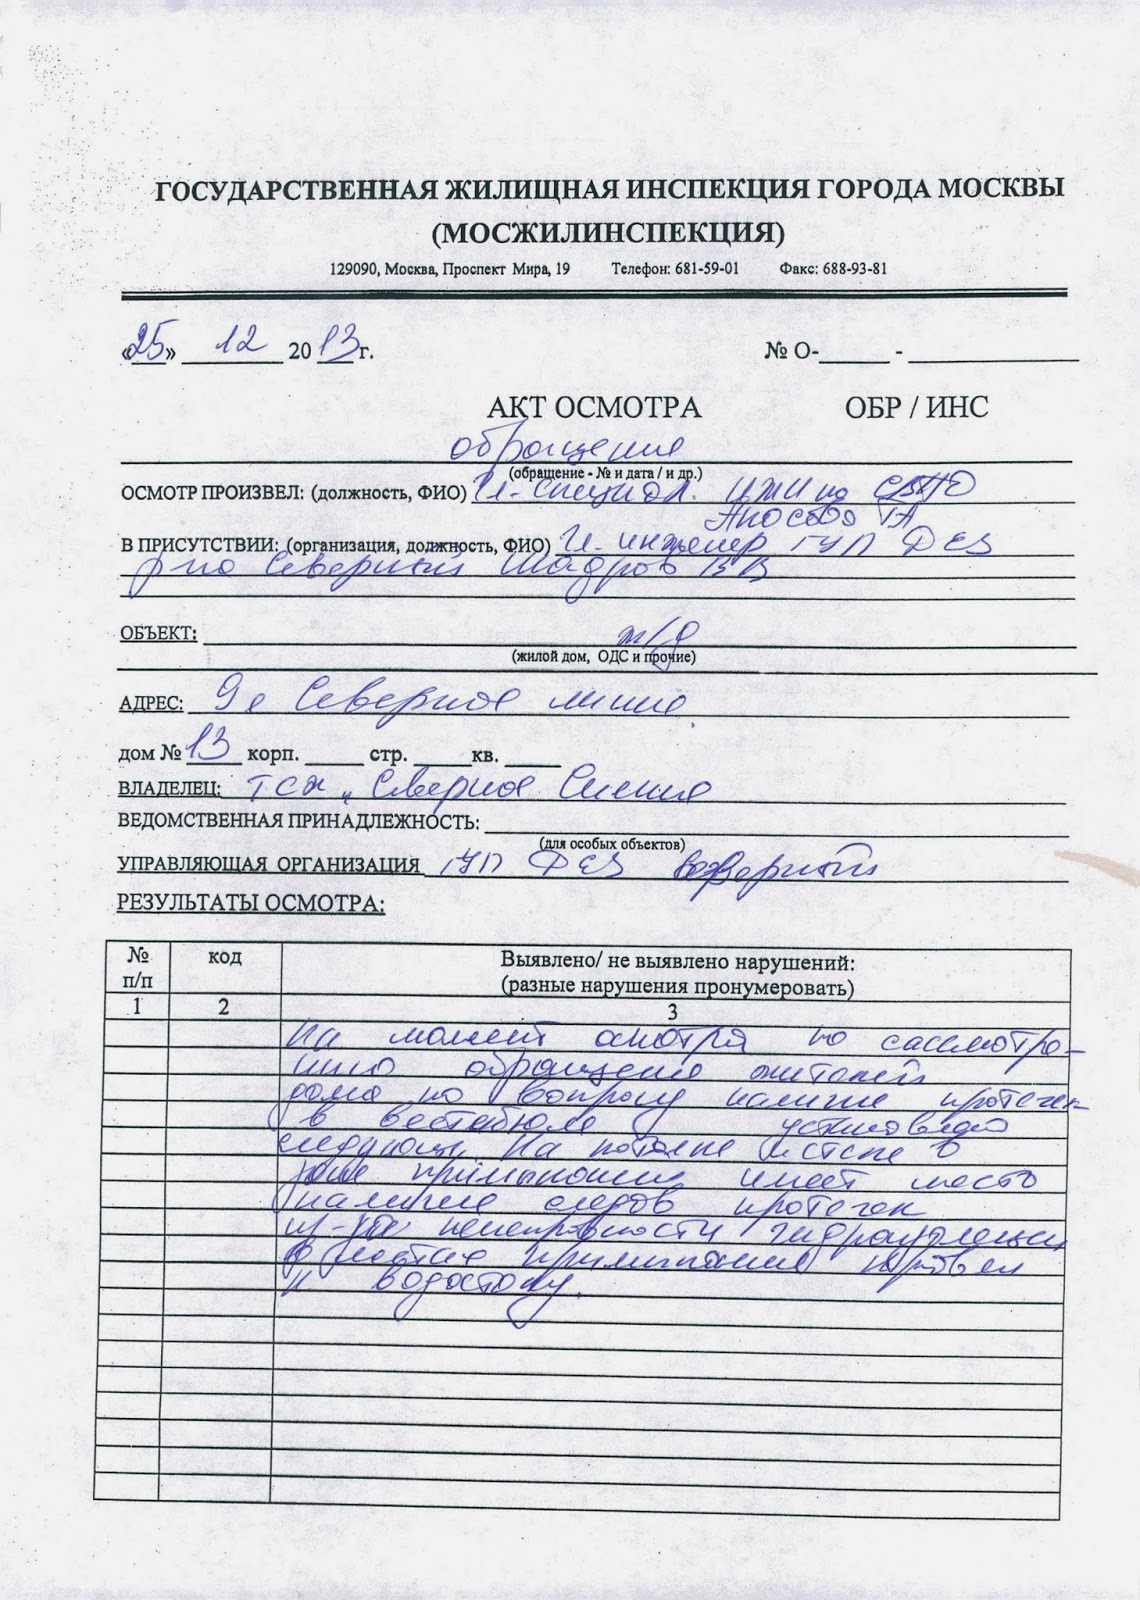 ГОСУДАРСТВЕННАЯ ЖИЛИЩНАЯ ИНСПЕКЦИЯ ГОРОДА МОСКВЫ
(МОСЖИЛИНСПЕКЦИЯ)
129090, Москва, Проспект Мира, 19 Телефон: 681-59-01 Факс: 688-93-81
«25» 12 20 13 г. № О-______ - ______
АКТ ОСМОТРА ОБР / ИНС
обращение
(обращение - № и дата / и др.)
ОСМОТР ПРОИЗВЕЛ: (должность, ФИО) Гл. специал. ИЖН по СВАО
В ПРИСУТСТВИИ: (организация, должность, ФИО) Гл. инженер ГУП ДЕЗ
р-на Северный Шадров В В
ОБЪЕКТ: ж/д
(жилой дом, ОДС и прочие)
АДРЕС: 9я Северная линия
дом № 13 корп. _____ стр. _____ кв. _____
ВЛАДЕЛЕЦ: ТСЖ „Северное Сияние
ВЕДОМСТВЕННАЯ ПРИНАДЛЕЖНОСТЬ:
(для особых объектов)
УПРАВЛЯЮЩАЯ ОРГАНИЗАЦИЯ ГУП ДЕЗ Северный
РЕЗУЛЬТАТЫ ОСМОТРА:
№ п/п код Выявлено/ не выявлено нарушений:
(разные нарушения пронумеровать)
1 2 3
На момент осмотра по рассмотре-
нию обращения жителей
дома по вопросу наличия протечек
в вестибюле установлено
следующее. На потолке и стене в
зоне примыкания имеет место
наличие следов протечек
из-за неисправности гидроизоляции
в местах примыкания кровли
к водостоку.